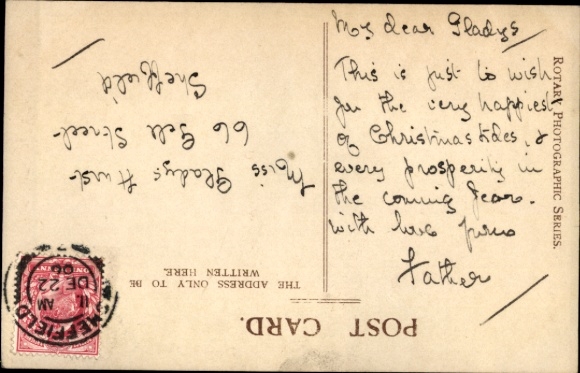 My dear Gladys
This is just to wish
you the very happiest
of Christmas tides, &
every prosperity in
the coming year.
with love from
Father
ROTARY PHOTOGRAPHIC SERIES.
POST CARD.
THE ADDRESS ONLY TO BE
WRITTEN HERE.
Miss Gladys Hurst
66 Gell Street
Sheffield
SHEFFIELD
11 AM
DE 22